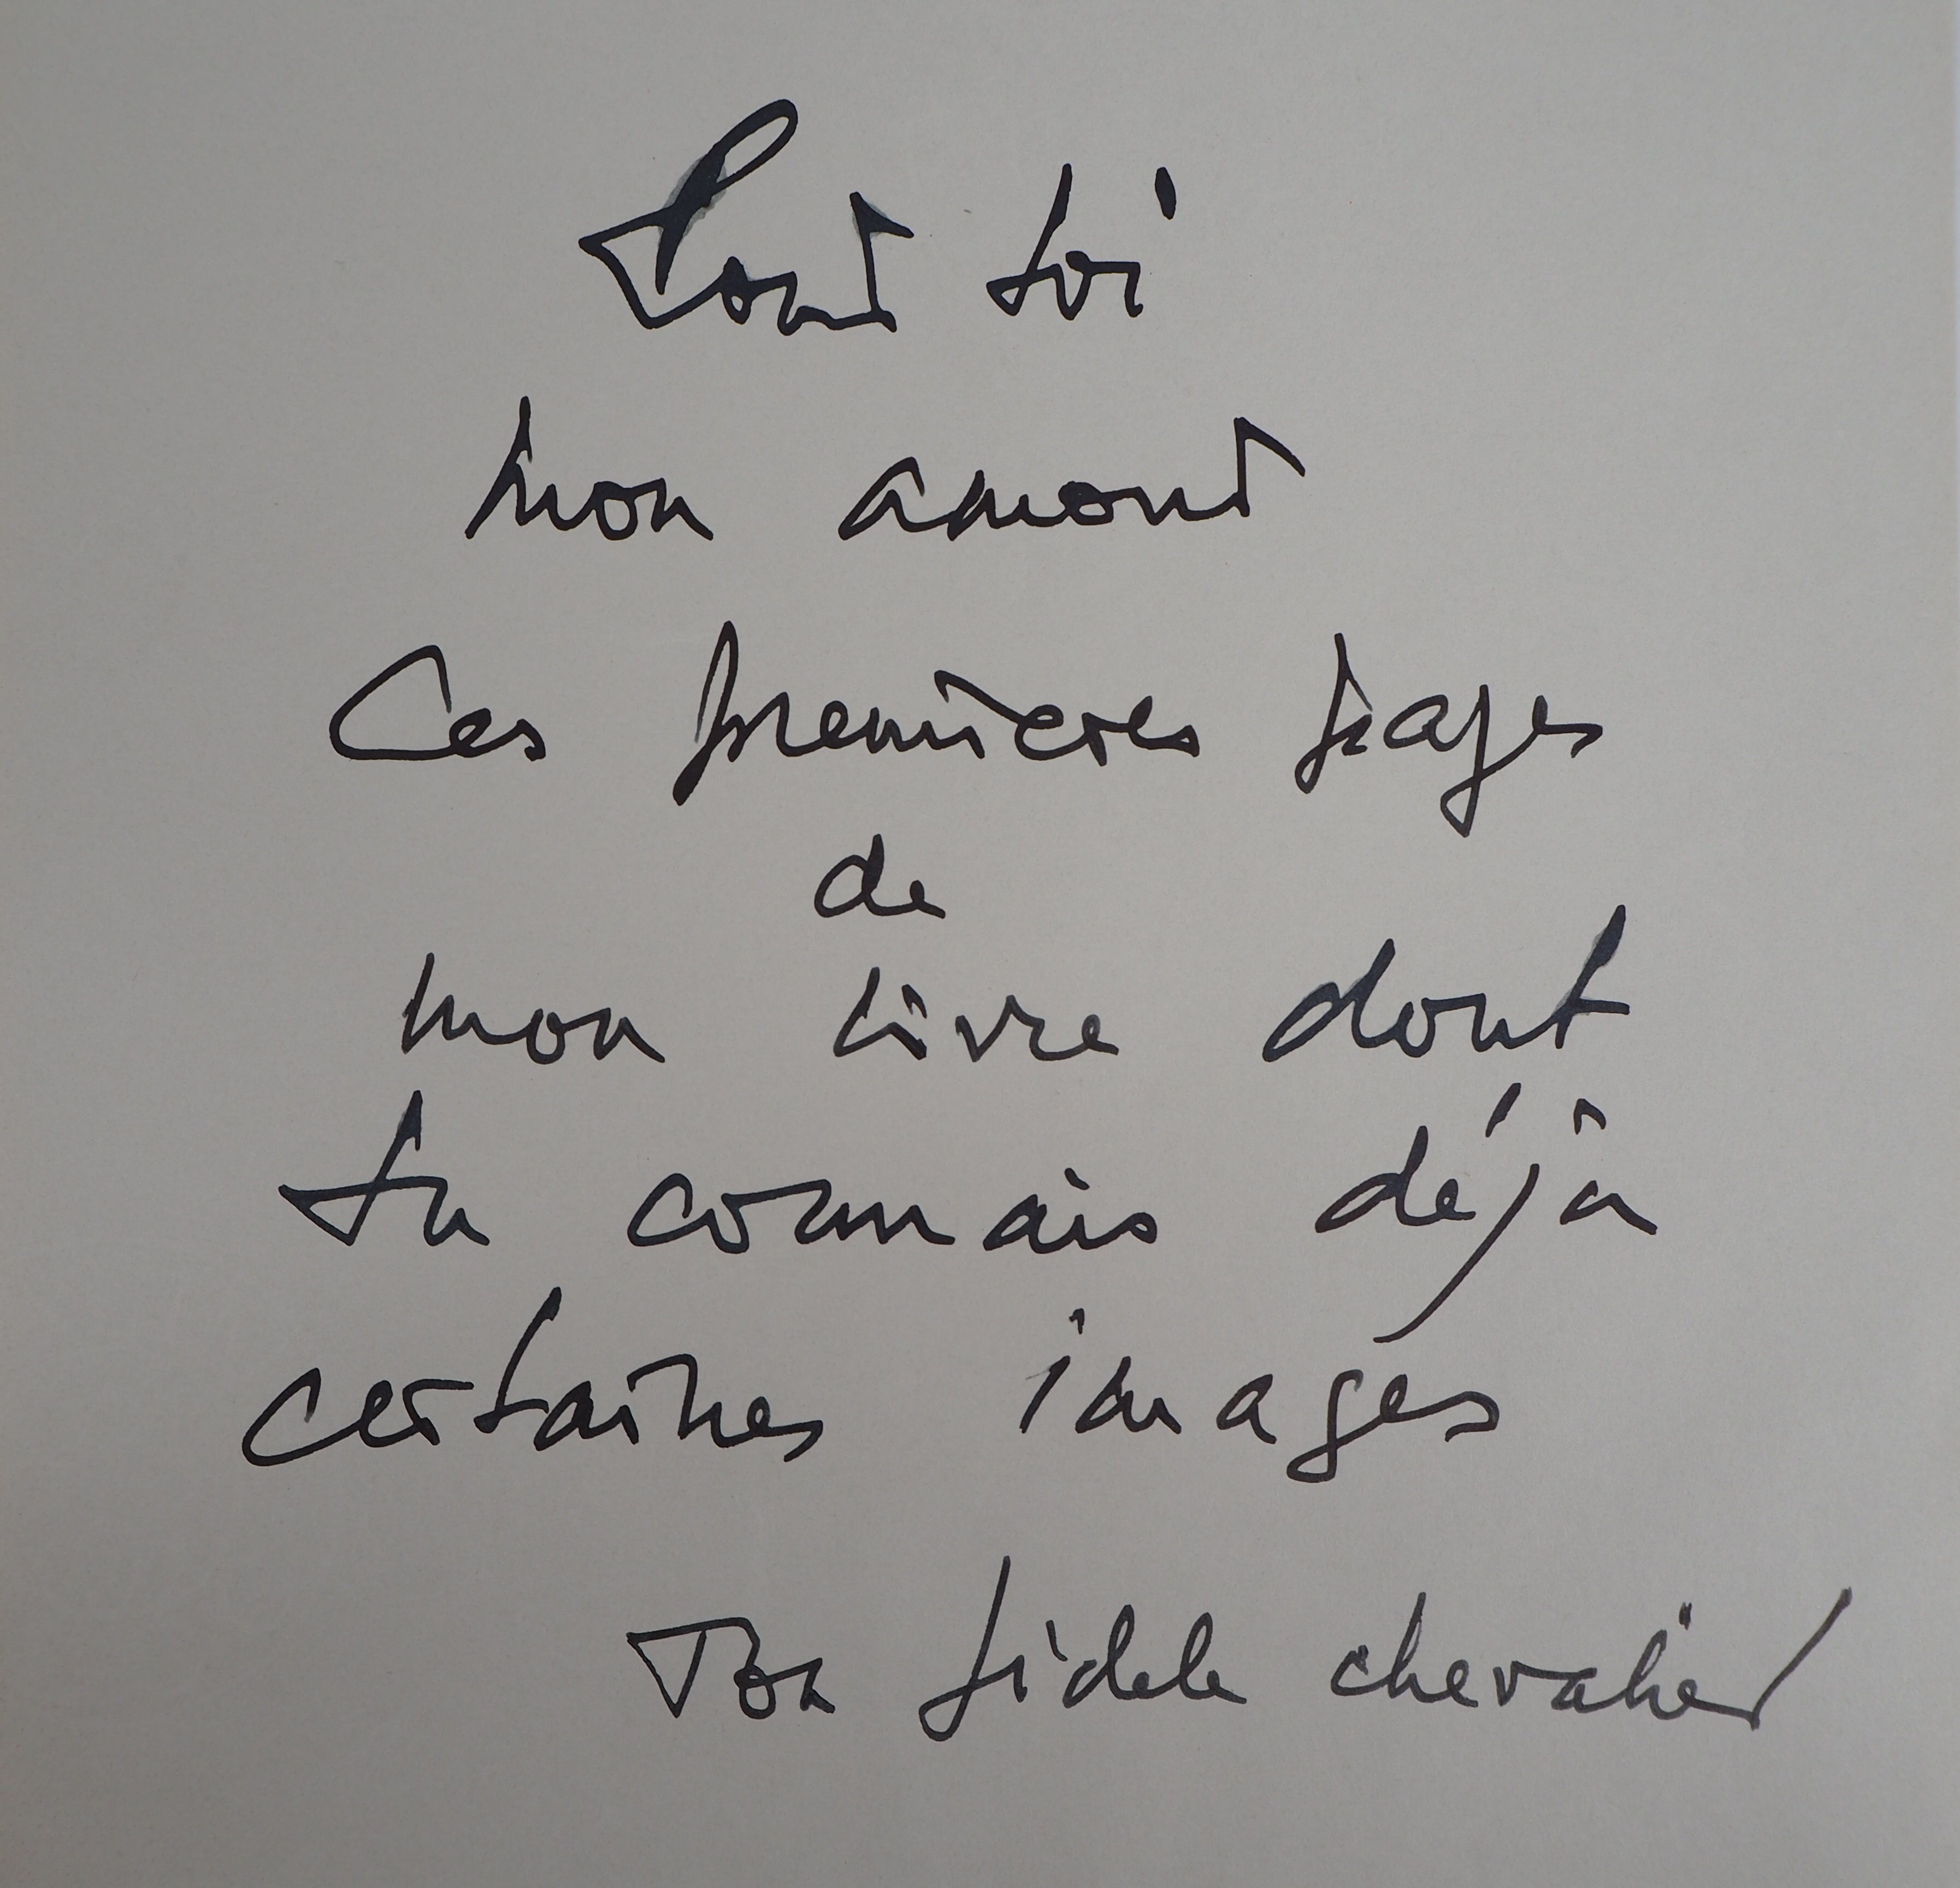 Pour toi
mon amour
Ces premières pages
de
mon livre dont
tu connais déjà
certaines images
Ton fidele chevalier